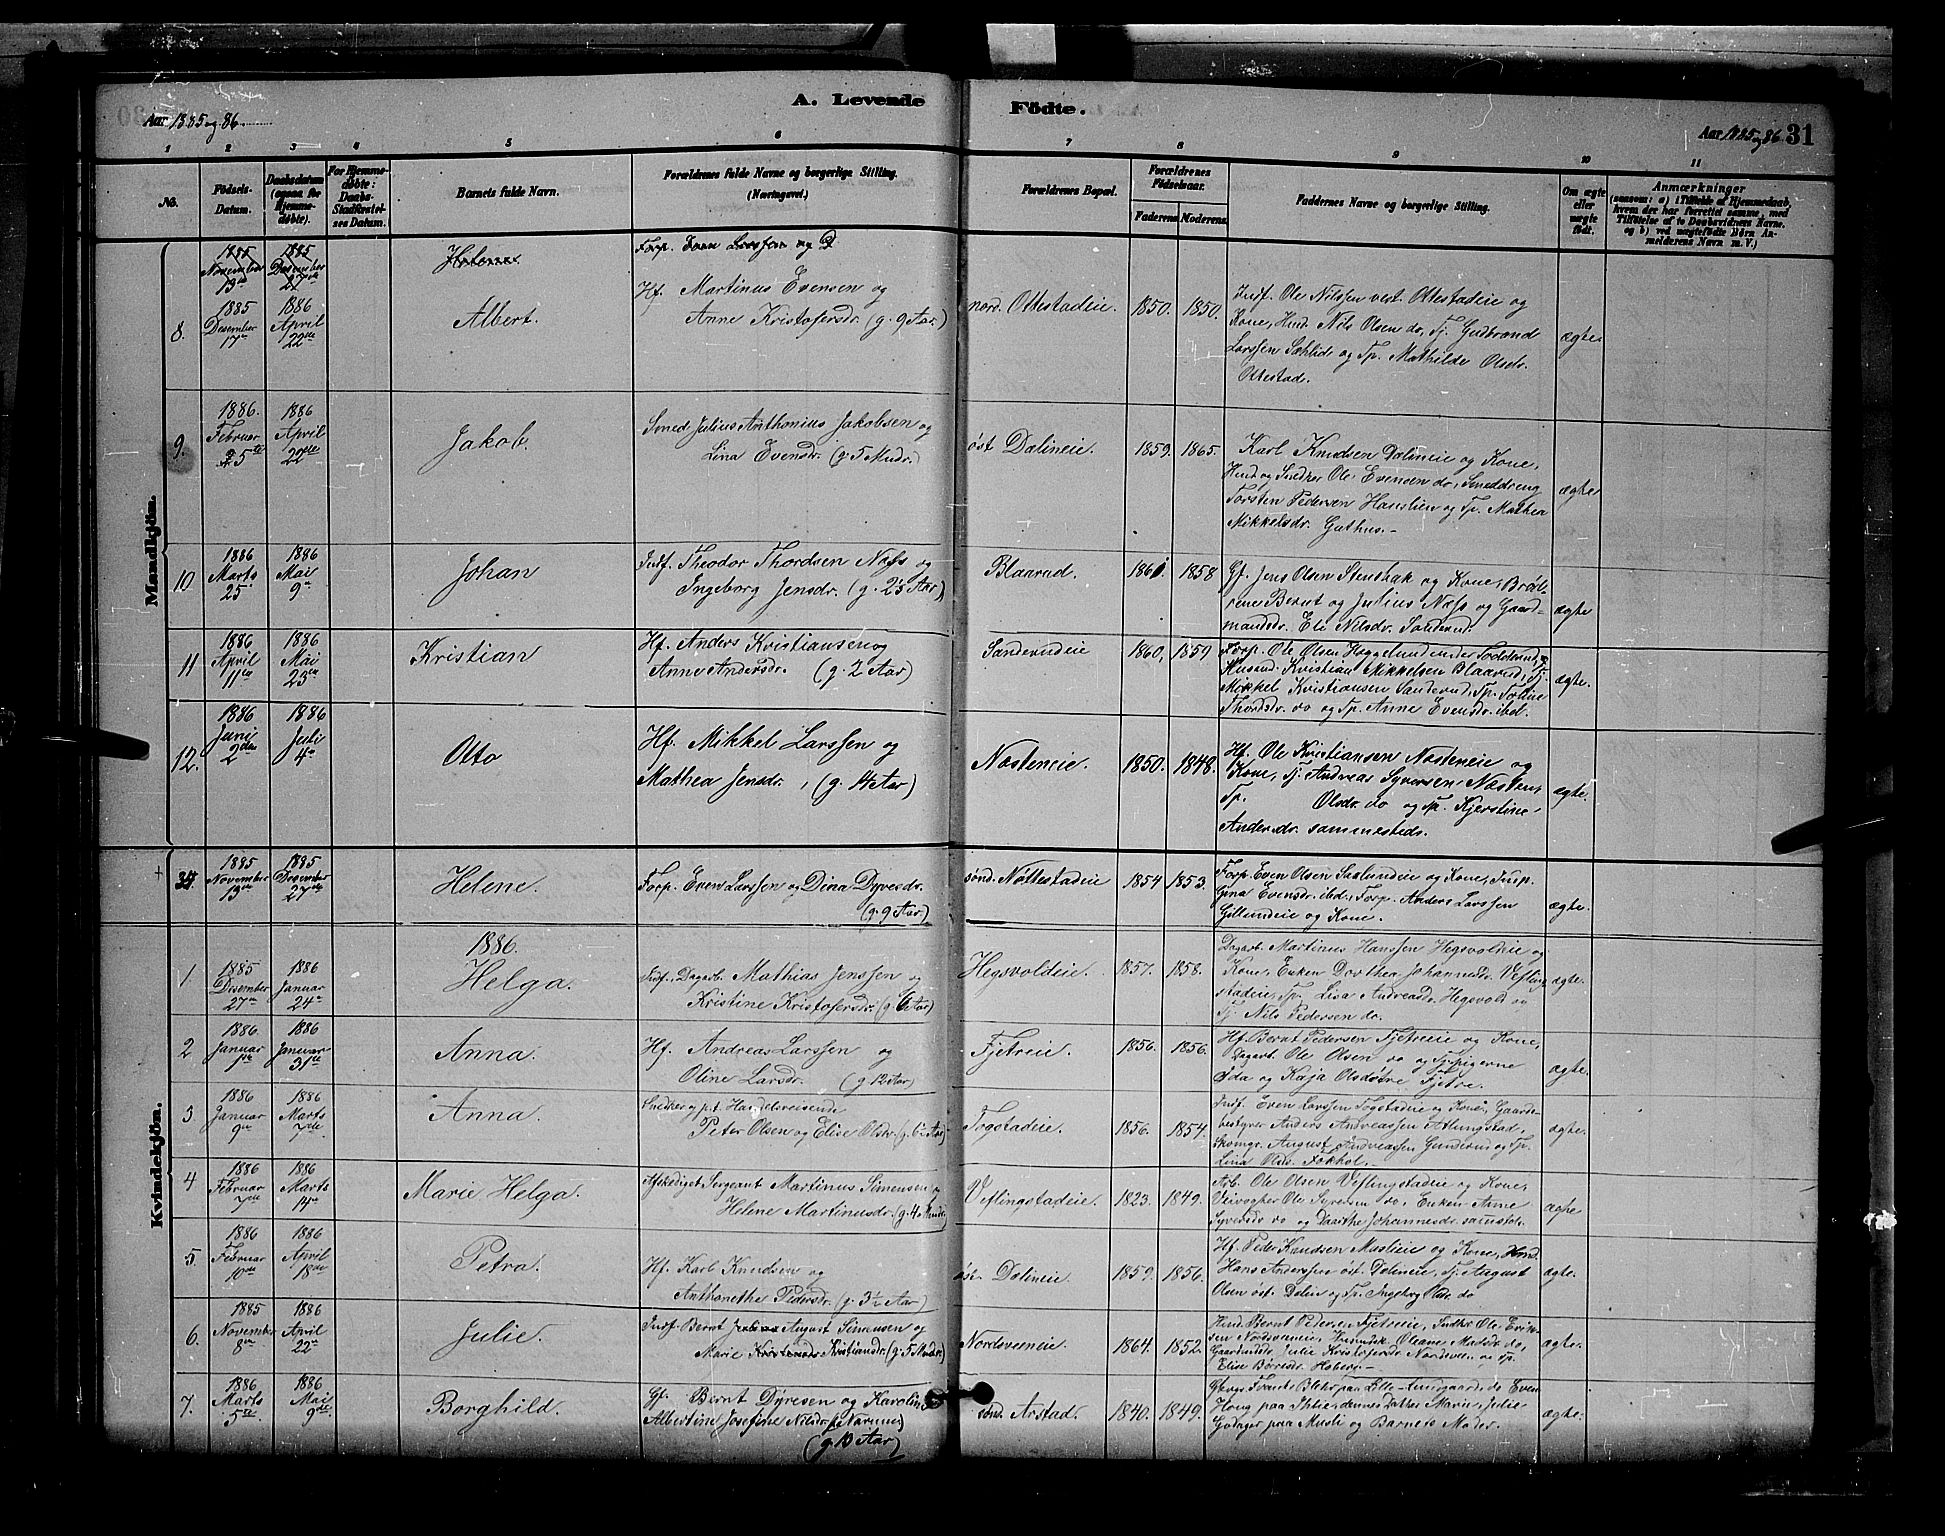 A. Levende Födte.
Aar 1885 og 86.
Aar 1885 og 86 31
1 2 3 4 5 6 7 8 9 10 11
No.
Födsels-Datum.
Daabsdatum (ogsaa for Hjemmedøbte).
For Hjemmedöbte: Daabs-Stadfæstelses Datum.
Barnets fulde Navn.
Forældrenes fulde Navne og borgerlige Stilling. (Næringsvei.)
Forældrenes Bopæl.
Forældrenes Födselsaar.
Faderens. Moderens.
Faddernes Navne og borgerlige Stilling.
Om ægte eller uægte födt.
Anmærkninger
(saasom: a) i Tilfælde af Hjemmedaab, hvem der har forrettet samme, med Tilföielse af to Daabsvidners Navne, og b) ved uægtefödte Börn Anmelderens Navn m. V.)
Mandkjön.
1885 November 13de 1885 Desember 27de Helene. Forp. Even Larssen og D
8. 1885 Desember 17de 1886 April 22de Albert. Hf. Martinus Evensen og
Anne Kristofersdr. (g. 9 Aar.)
nord. Ottestadeie. 1850. 1850.
Indf. Ole Nilssen vest. Ottestadeie og
Kone, Husd. Nils Olsen do, Tj. Gudbrand
Larssen Sæhlie og Tp. Mathilde Olsdr.
Ottestad.
ægte
9. 1886. Februar 25de 1886 April 22de Jakob. Smed Julius Anthonius Jakobsen og
Lina Evensdr. (g. 5 Mndr.)
öst Dalineie. 1859. 1865.
Karl Knudsen Dalineie og Kone,
Husd og Snedker Ole Evensen do, Smeddreng
Torsten Pedersen Hanslien og Tp. Mathea
Mikkelsdr. Guthus.
ægte
10 1886 Marts 25 1886 Mai 9de Johan Indf. Theodor Thordsen Næss og
Ingeborg Jensdr. (g. 2½ Aar)
Blaarud. 1861. 1858
Gf. Jens Olsen Stenshak og Kone, Brödrene Bernt og Julius Næss og Gaardmandsdr. Eli Nilsdr. Sanderud.
ægte
11 1886 April 11te 1886 Mai 23de Kristian Hf. Anders Kristiansen og
Anne Andersdr. (g. 2 Aar)
Sanderudeie 1860, 1859
Forp. Ole Olsen Haggelund under Fodderud, og
Husmd. Kristian Mikkelsen Blaarud, Tj.
Mikkel Kristiansen Sanderud, Tp. Toline
Thordsdr. do og Tp. Anne Evensdr. ibd.
ægte.
12. 1886 Juni 2den 1886 Juli 4de Otto Hf. Mikkel Larssen og
Mathea Jensdr. , (g. 14 Aar)
Næsteneie. 1850. 1848.
Hf. Ole Kristiansen Næsteneie og
Kone, Tj. Andreas Syversen, Næsten,
Tp. Olsdr. do og Tp. Kjerstine
Andersdr. sammesteds.
ægte.
+ 34. 1885 November 13de 1885 Desember 27de Helene. Forp. Even Larssen og Dina Dyresdr.
(g. 9 Aar.)
sönd. Nöttestadeie 1854 1853.
Forp. Even Olsen Saslundeie og Kone, Tusp.
Gina Evensdr. ibd., Forp. Anders Larssen
Gillundeie og Kone.
ægte.
Kvindekjön.
1886.
1 1885 Desember 27de 1886 Januar 24de Helga. Indf. Dagarb. Mathias Jenssen og
Kristine Kristofersdr. (g. 6 Aar)
Hegsvoldeie. 1857. 1858.
Dagarb. Martinus Hanssen Hegsvoldeie og
Kone, Enken Dorthea Johannesdr. Veflingstadeie, Tp. Lisa Andreasdr. Hegsvold og
Tj. Nils Pedersen do.
ægte.
2 1886 Januar 1ste 1886 Januar 31te Anna. Hf. Andreas Larssen og
Oline Larsdr. (g. 12 Aar)
Fjetreie. 1856. 1856.
Hf. Bernt Pedersen Fjetreie og Kone,
Dagarb. Ole Olsen do og Tj.pigerne
Ida og Kaja Olsdötre Fjetre.
ægte.
3 1886 Januar 9de 1886 Marts 7de Anna. Snedker og p.t. Handelsreisende
Peter Olsen og Elise Olsdr. (g. 6½ Aar)
Fogstadeie. 1856. 1854.
Indf. Even Larssen Fogstadeie og Kone, Gaardsbestyrer Anders Andreassen Atlungstad,
Skomgr. August Andreassen Gunderud og Tp.
Lina Olsdr. Fokhol.
ægte.
4 1886 Februar 7de 1886 Marts 14de Marie Helga. Afskediget Sergeant Martinus Simensen og
Helene Martinusdr. (g. 4 Mndr.)
Veflingstadeie. 1823. 1849.
Arb. Ole Olsen Veflingstadeie og Kone,
Veivogter Ole Syversen do, Enken Anne
Syversdr do og Dorthe Johannesdr. samstds.
ægte
5. 1886 Februar 10de 1886 April 18de Petra. Hf. Karl Knudsen og
Anthonethe Pedersdr. (g. 3½ Aar)
öst. Dalineie. 1859. 1856.
Hf. Peder Knudsen Muslieie og Kone, Husd.
Hans Anderssen öst. Dalineie, Tj. August
Olsen öst. Dalen og Tp. Ingeborg Olsdr. do
ægte.
6. 1885 November 8de 1886 April 22de Julie. Indf. Bernt Julius August Simensen og
Marie Kristends Kristiansdr. (g. 5 Mndr.)
Nordsveeneie. 1864. 1852.
Husd. Bernt Pedersen Fjetreie, Snedker Ole Eriksen Nordsveeneie, Husmdsk. Oleane Madsdr. do,
Gaardmdsdr. Julie Kristofersdr. Nordsveen og Tp.
Elise Böresdr. Hoberg.
ægte.
7. 1886 Marts 5te 1886 Mai 9de Borghild. Gf. Bernt Dyresen og Karoline
Albertine Josefine Nilsdr. (f. Narum)
(g. 10 Aar)
sönd. Arstad. 1840. 1849.
Frants Blehr paa Lille-, do Even
Hong paa Ihle, dennes Datter Marie, Julie
Godager paa Musli og Barnets Moder.
ægte.